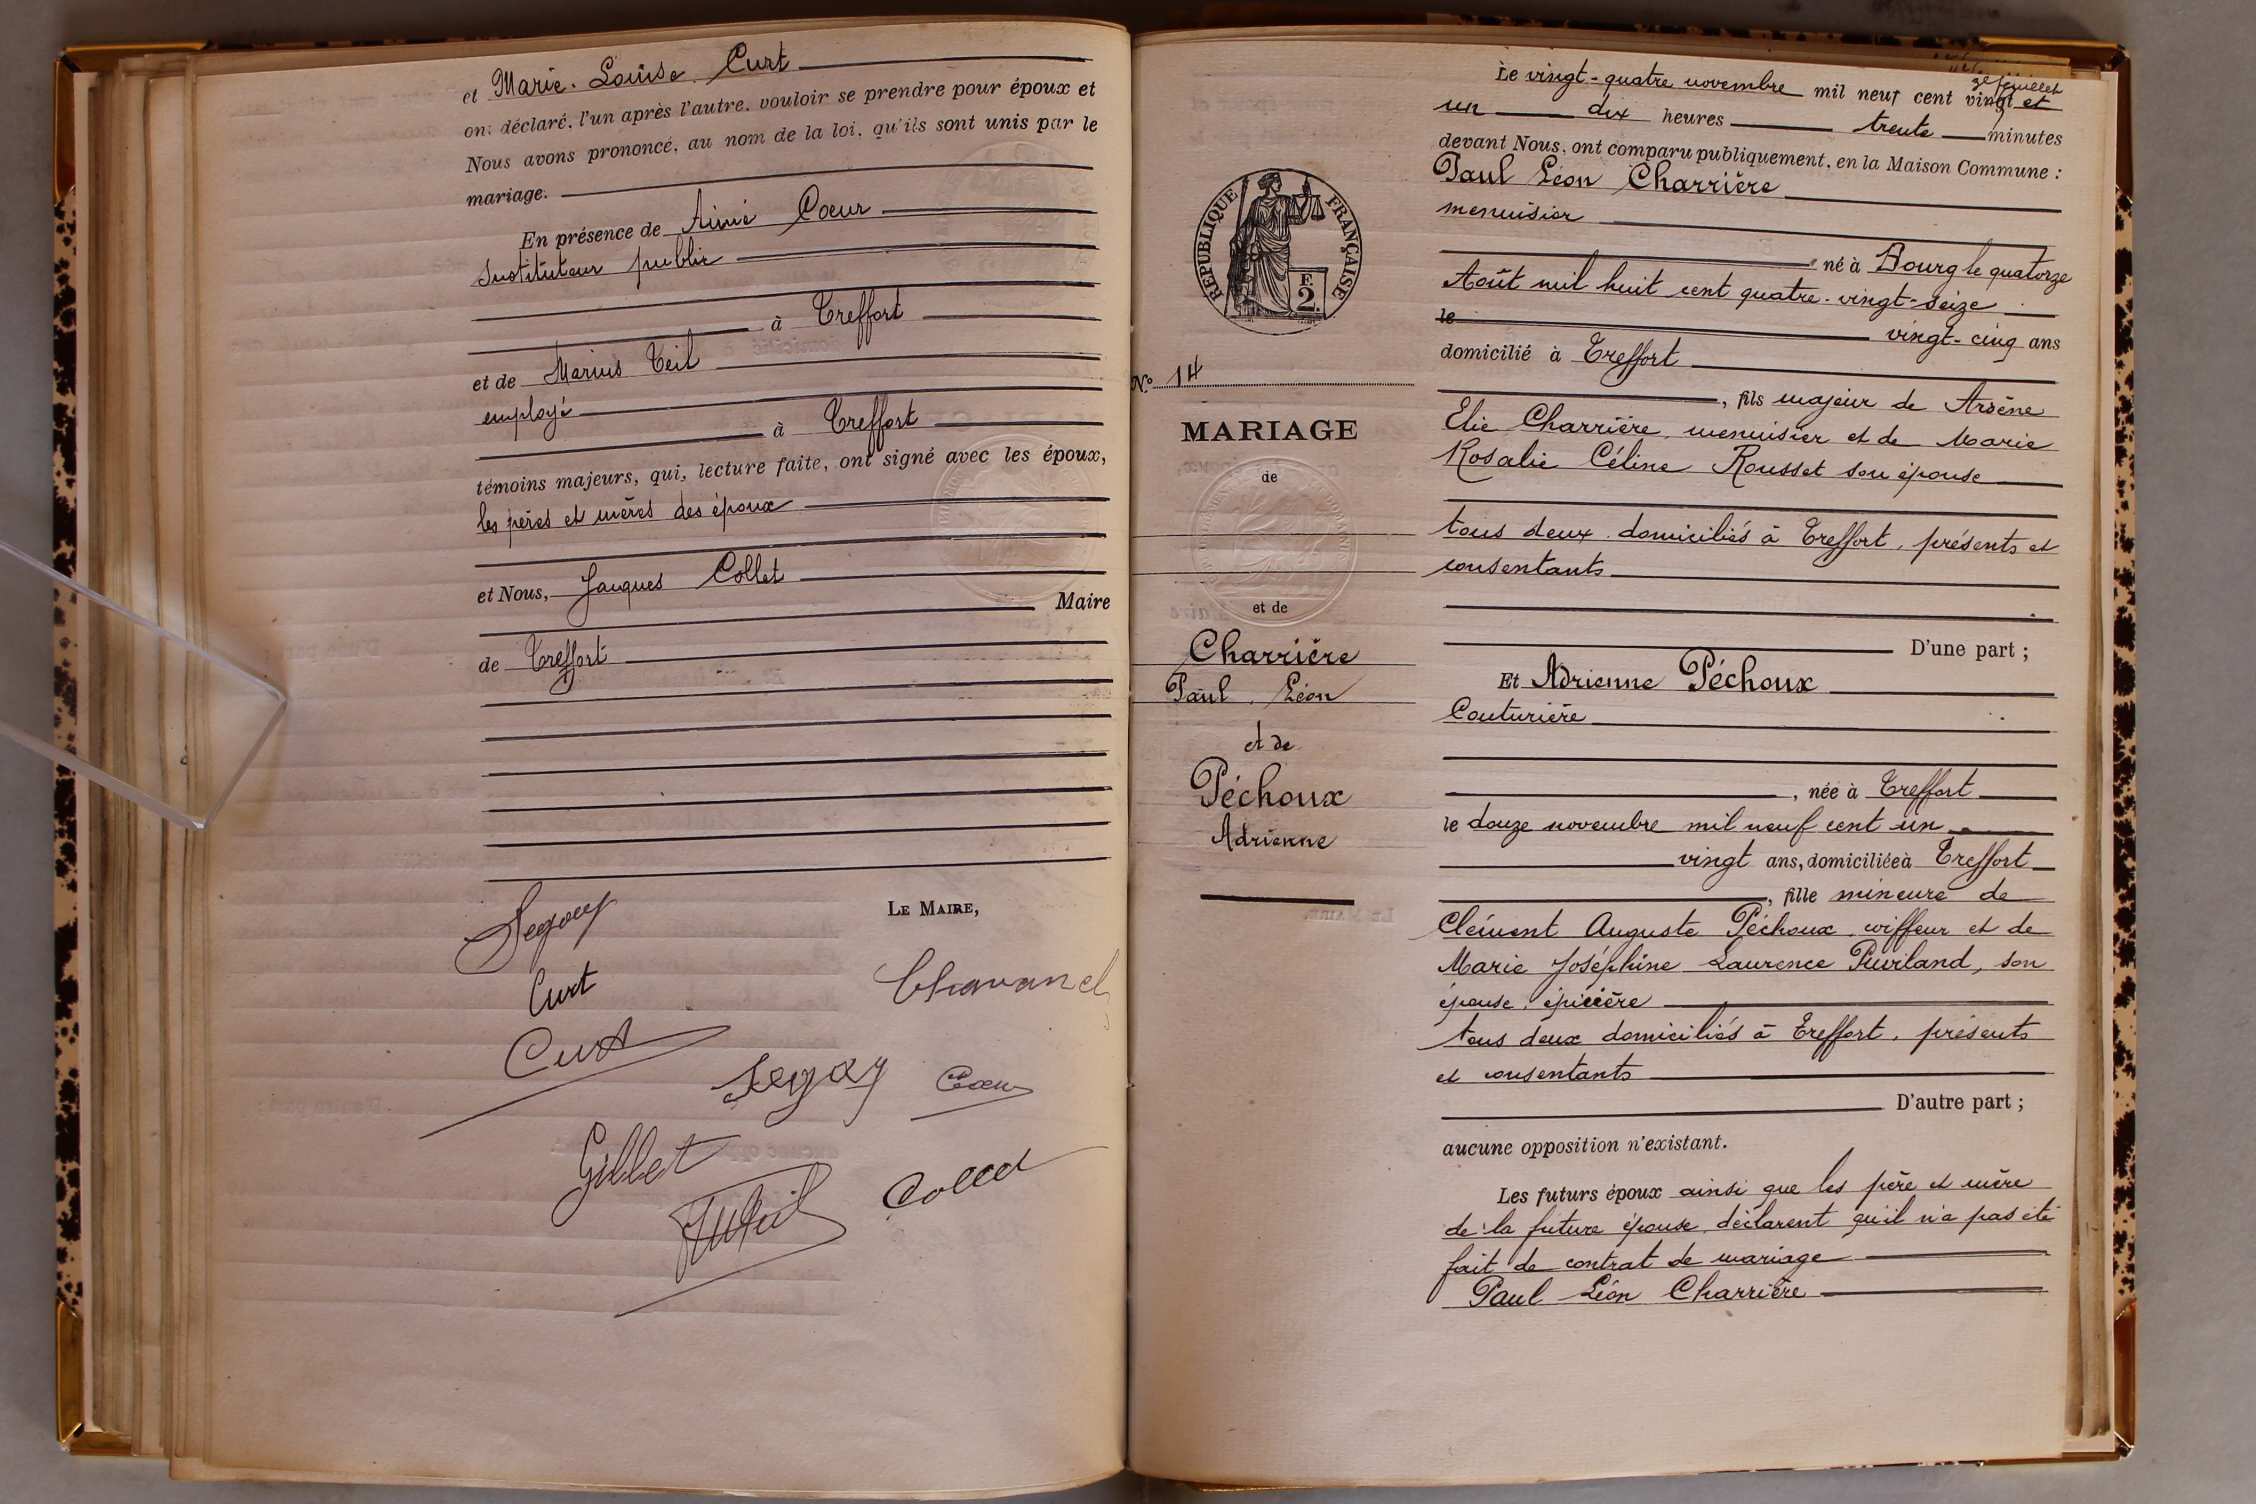 et Marie. Louise. Curt
ont déclaré, l'un après l'autre, vouloir se prendre pour époux et
Nous avons prononcé, au nom de la loi, qu'ils sont unis par le
mariage.
En présence de Aimé Coeur
Instituteur public
à Treffort
et de Marius Teil
employé
à Treffort
témoins majeurs, qui, lecture faite, ont signé avec les époux,
les pères et mères des époux
et Nous, Jacques Collet
Maire
de Treffort
LE MAIRE,
Segouy
Curt
Chavanel
Curt
Segoy
Coeur
Gillet
Collet
RÉPUBLIQUE FRANÇAISE
F.
2
No 14
MARIAGE
de
et de
Charrière
Paul. Léon
et de
Péchoux
Adrienne
feuillet
Le vingt-quatre novembre mil neuf cent vingt et
un dix heures trente minutes
devant Nous, ont comparu publiquement, en la Maison Commune :
Paul Léon Charrière
menuisier
né à Bourg le quatorze
Août mil huit cent quatre-vingt-seize
le
vingt-cinq ans
domicilié à Treffort
, fils majeur de Arsène
Elie Charrière, menuisier et de Marie
Rosalie Céline Rousset son épouse
tous deux domiciliés à Treffort, présents et
consentants
D'une part ;
Et Adrienne Péchoux
Couturière
, née à Treffort
le douze novembre mil neuf cent un
vingt ans, domiciliée à Treffort
, fille mineure de
Clément Auguste Péchoux, coiffeur et de
Marie Joséphine Laurence Puviland, son
épouse, épicière
tous deux domiciliés à Treffort, présents
et consentants
D'autre part ;
aucune opposition n'existant.
Les futurs époux ainsi que les père et mère
de la future épouse, déclarent qu'il n'a pas été
fait de contrat de mariage
Paul Léon Charrière